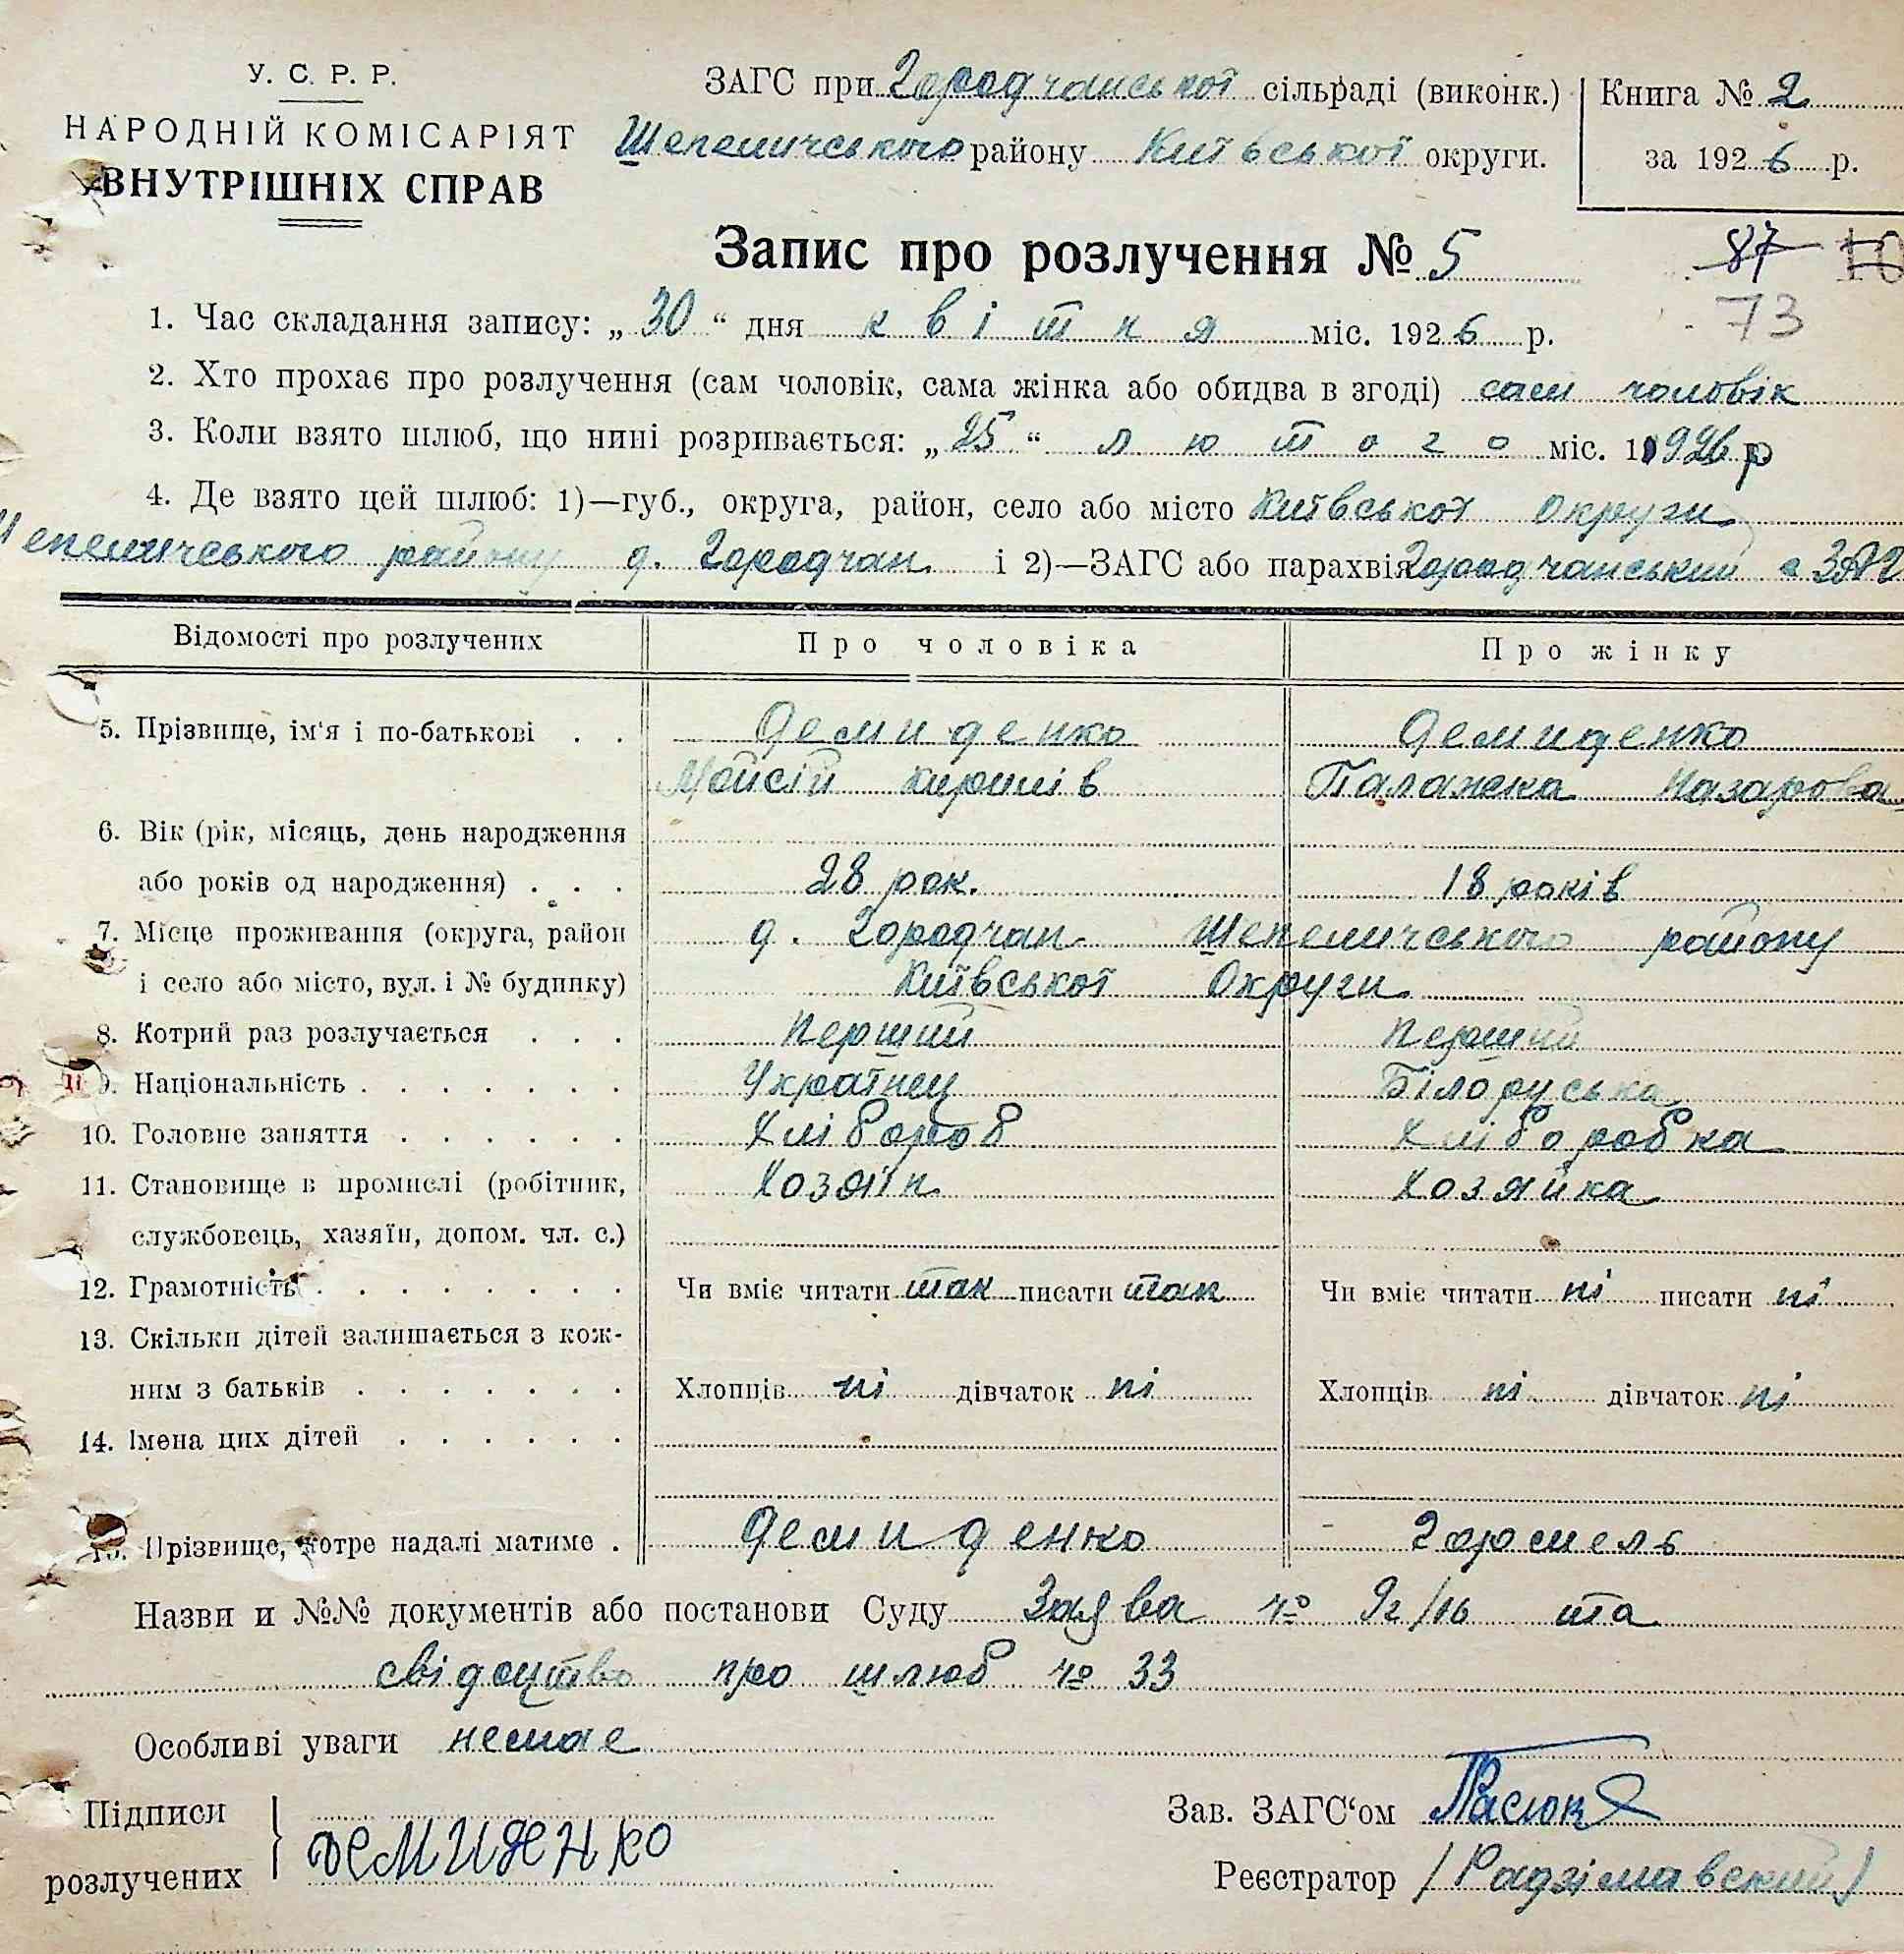 У. С. Р. Р.
НАРОДНІЙ КОМІСАРІЯТ
ВНУТРІШНІХ СПРАВ
ЗАГС при Городчанської сільраді (виконк.)
Шепеличського району Київської округи.
Книга № 2
за 1926 р.
Запис про розлучення № 5
87
73
1. Час складання запису: „30“ дня квітня міс. 1926 р.
2. Хто прохає про розлучення (сам чоловік, сама жінка або обидва в згоді) сам чоловік
3. Коли взято шлюб, що нині розривається: „25“ лютого міс. 1926 р
4. Де взято цей шлюб: 1)—губ., округа, район, село або місто Київської Округи
Шепеличського району д. Городчан і 2)—ЗАГС або парахвія Городчанський
Відомості про розлучених Про чоловіка Про жінку
5. Прізвище, ім'я і по-батькові . . Демиденко Демиденко
Мойсій Кирилів Палажка Назарова
6. Вік (рік, місяць, день народження
або років од народження) . . . 28 рок. 18 років
7. Місце проживання (округа, район д. Городчан Шепеличського району
і село або місто, вул. і № будинку) Київської Округи
8. Котрий раз розлучається . . . Перший Перший
9. Національність . . . . . . . Українец Білоруська
10. Головне заняття . . . . . . Хлібороб Хліборобка
11. Становище в промислі (робітник, Хозяїн Хозяйка
службовець, хазяїн, допом. чл. с.)
12. Грамотність . . . . . . . Чи вміє читати так писати так Чи вміє читати ні писати ні
13. Скільки дітей залишається з кож-
ним з батьків . . . . . . . Хлопців ні дівчаток ні Хлопців ні дівчаток ні
14. Імена цих дітей . . . . . .
15. Прізвище, котре надалі матиме . Демиденко Гормель
Назви и №№ документів або постанови Суду Заява № 92/16 та
свідоцтво про шлюб № 33
Особливі уваги немає
Підписи
розлучених
ДЕМИДЕНКО
Зав. ЗАГС'ом
Реєстратор